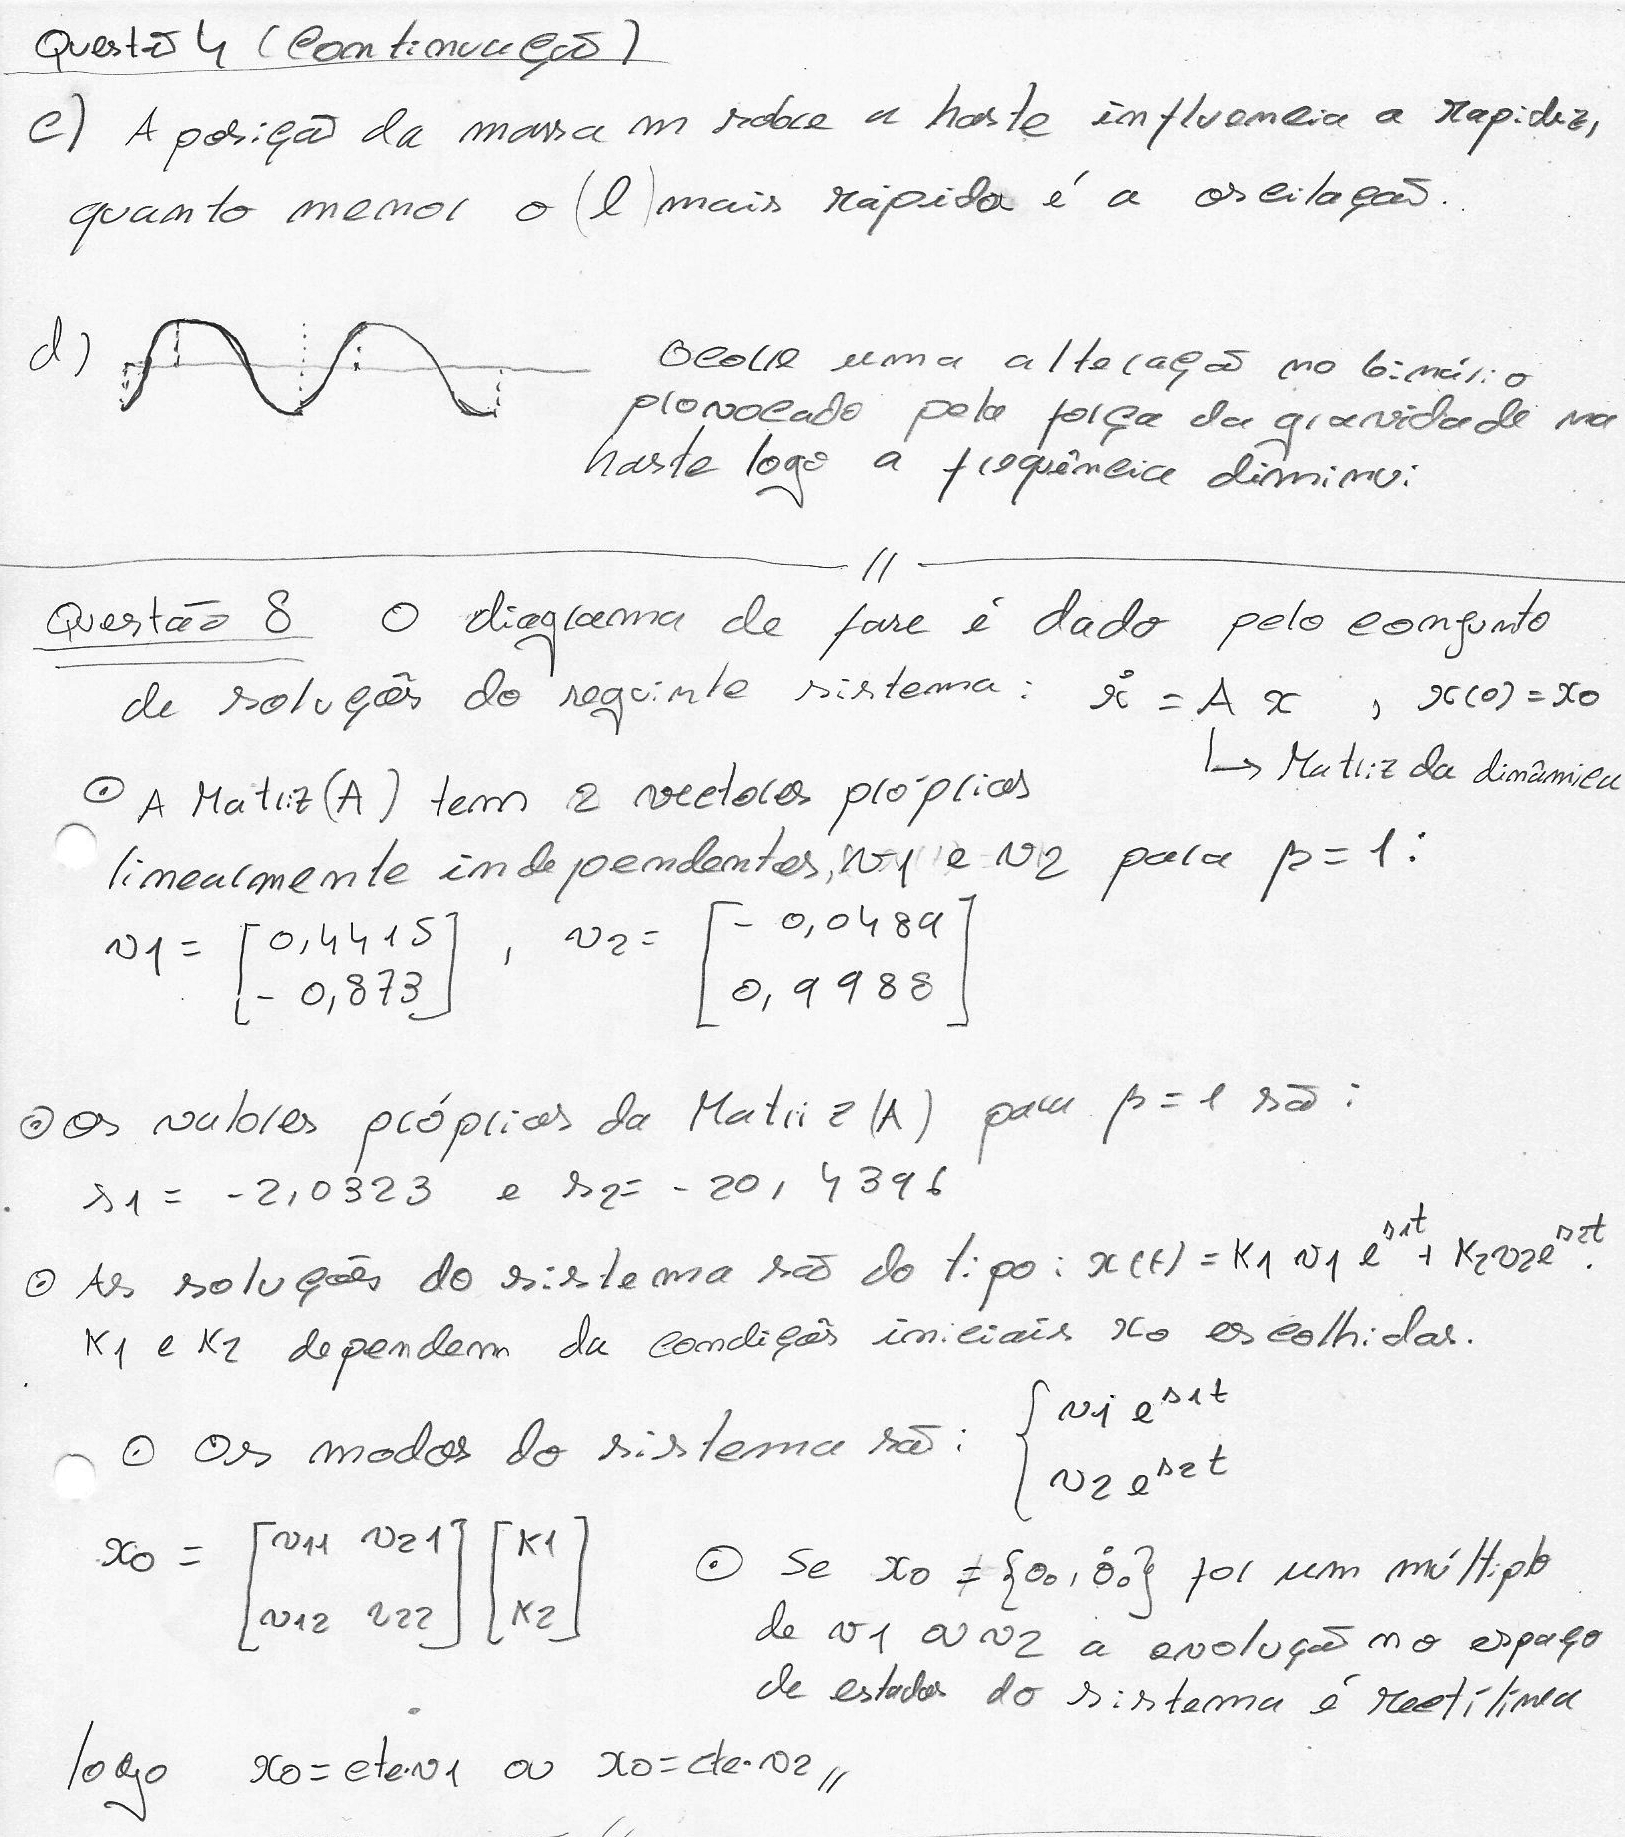 Questão 4 (Continuação)
c) A posição da massa m sobre a haste influencia a rapidez,
quanto menor o (l) mais rápida é a oscilação.
d)
Ocorre uma alteração no binário
provocado pela força da gravidade na
haste logo a frequência diminui
//
Questão 8 O diagrama de fase é dado pelo conjunto
de soluções do seguinte sistema: ẋ = A x , x(0) = x0
↳ Matriz da dinâmica
⊙ A Matriz (A) tem 2 vectores próprios
linearmente independentes, v1 e v2 para β = 1:
v1 = [0,4415 -0,873] , v2 = [-0,0489 0,9988]
⊙ Os valores próprios da Matriz (A) para β = 1 são:
s1 = -2,0323 e s2 = -20,4396
⊙ As soluções do sistema são do tipo: x(t) = K1 v1 e^s1t + K2 v2 e^s2t.
K1 e K2 dependem da condições iniciais x0 escolhidas.
⊙ Os modos do sistema são: { v1 e^s1t
v2 e^s2t
x0 = [v11 v21 v12 v22] [K1 K2]
⊙ Se x0 = {θ0, θ̇0} for um múltiplo
de v1 ou v2 a evolução no espaço
de estados do sistema é rectilínea
logo x0 = cte·v1 ou x0 = cte·v2 //